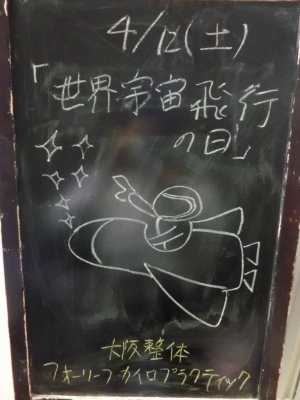 4/12(土)
「世界宇宙飛行
の日」
大阪整体
フォーリーフ・カイロプラクティック